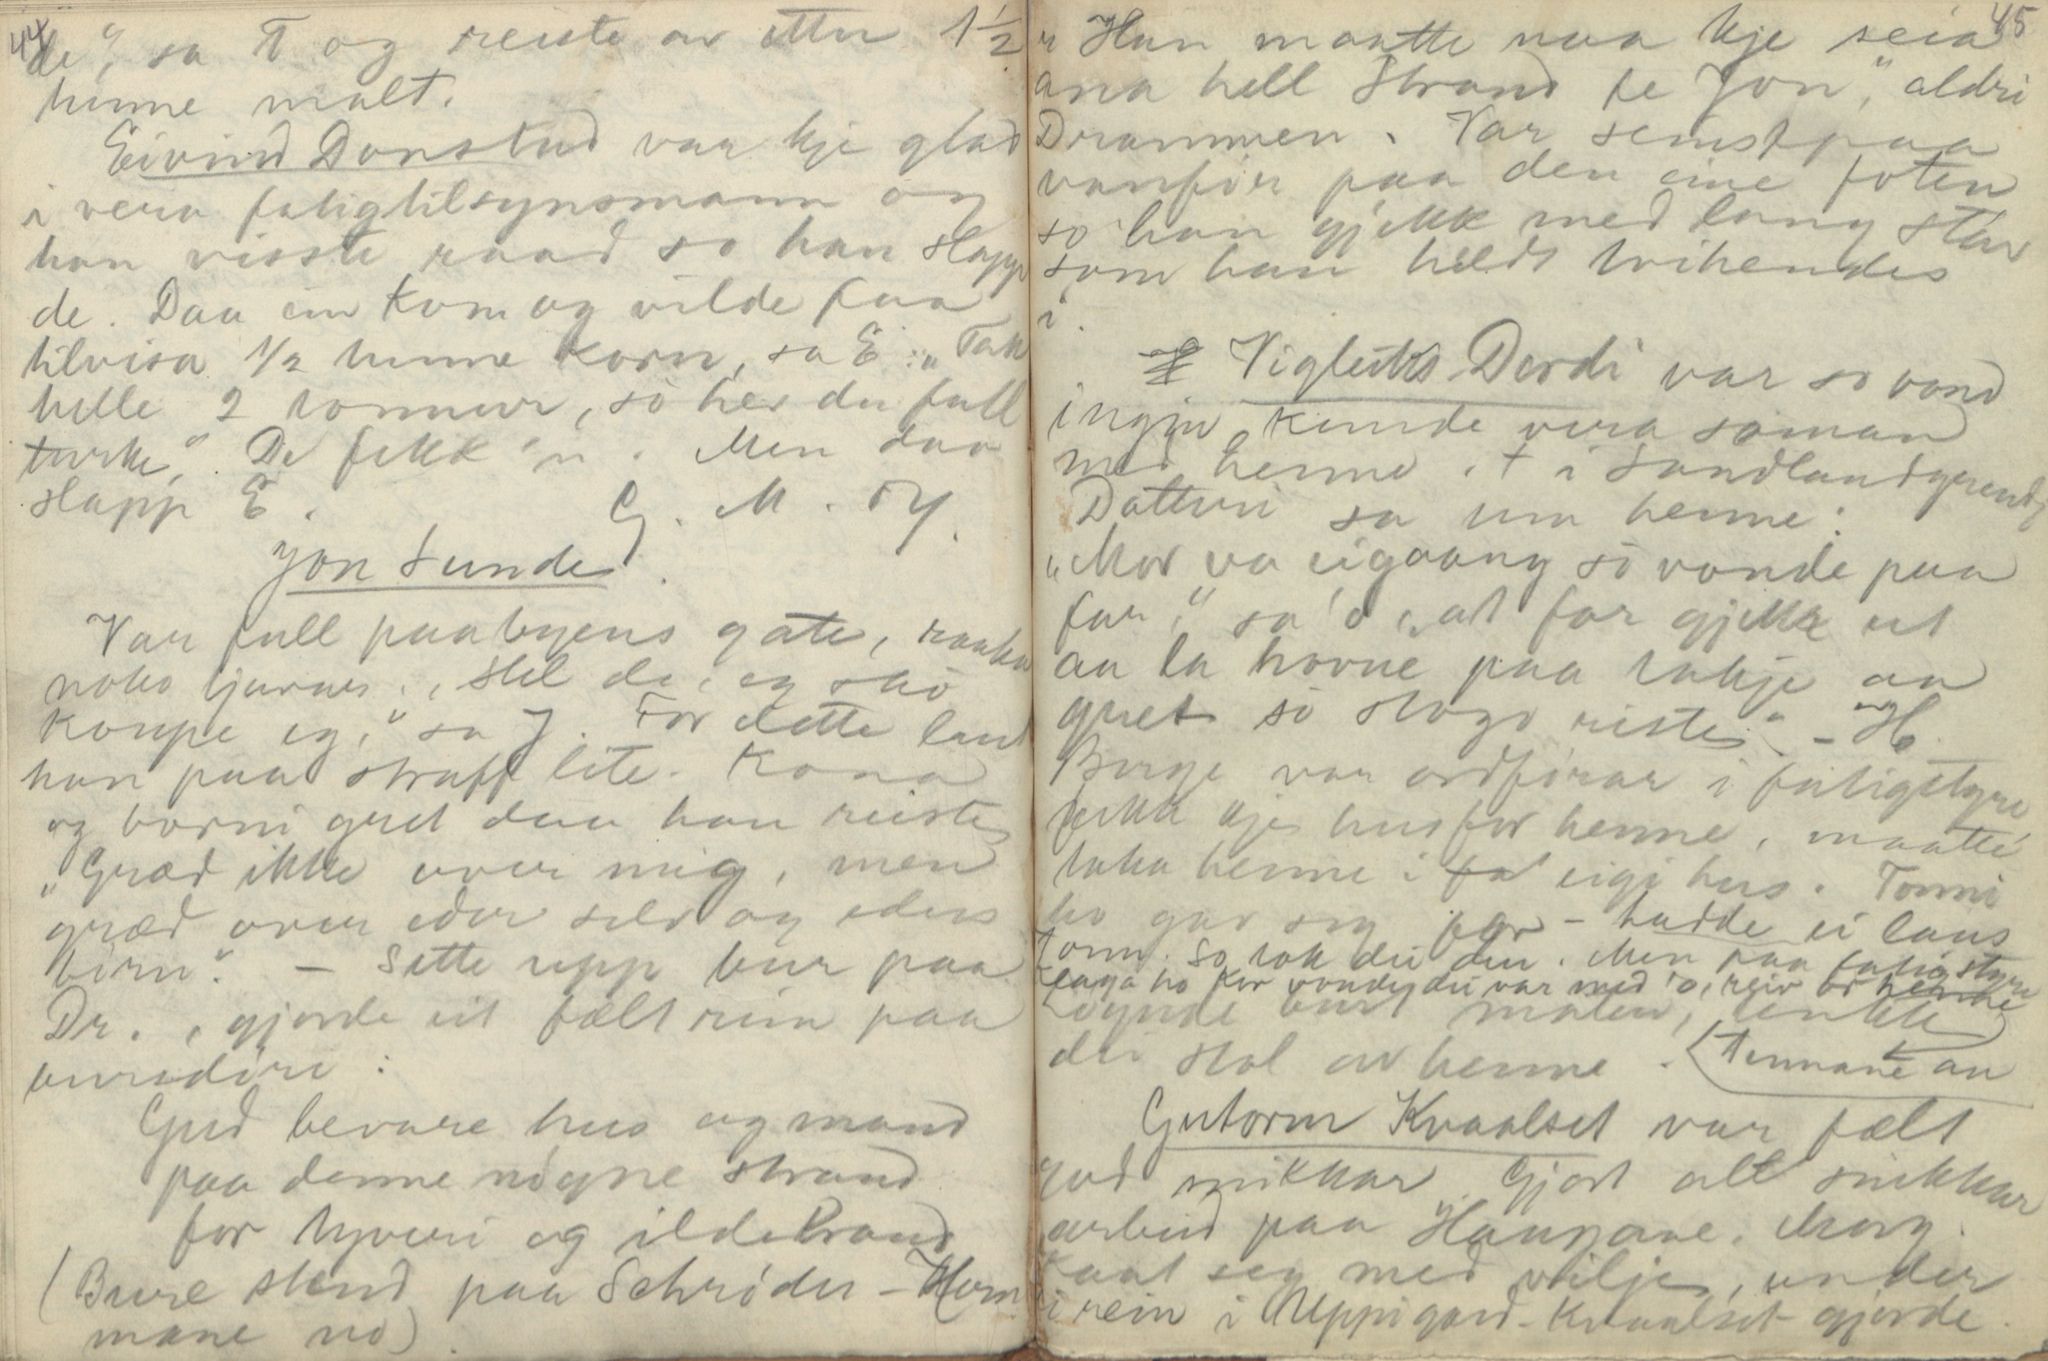 44
de", sa T og reiste av etter 1½
tunne malt.
Eivind Donstad var kje glad
i vera fatigtilsynsmann og
han visste raad so han slapp
de. Daa ein kom og vilde faa
tilvisa ½ tunne korn, sa E: "Tak
helle 2 tonnur, so her du full
turke," De fekk 'n. Men daa
slapp E.
G. M. Øy.
Jon Sunde.
Var full paa byens gate, raaka
noko tjuvar. "Stel de, eg skò
koupe eg," sa J. For dette laut
han paa straff lite. Kona
og borni gret daa han reiste
"Græd ikke over mig, men
græd over eder selv og eders
børn". - Sette upp bur paa
Dr., gjorde eit fælt rim paa
buredøri:
Gud bevare hus og mand
paa denne nøgne strand
for tyveri og ildebrand
(Bure stend paa Schrøder-Hem
mane no)
45
Han maatte naa kje seia
ana hell Strand te Jon", aldri
Drammen. Var seinst paa
vanfør paa den eine foten
so han gjekk med lang stav
som han heldt tvihendes
i.
Vigleiks Dordi var so vond
ingjin kunde vera saman
med henne. † i Sandlandgrend
Dotteri sa um henne:
"Mor va eigaang so vonde paa
far," sa 'o, "at far gjekk ut
aa la hovue paa takje aa
gret so stogo riste." - H.
Berge var ordførar i fatigstyre
fekk kje hus for henne, maatte
taka henne i eigi hus. Tonni
ho gav seg for - hadde ei laus
tonn. So tok dei den. Men paa fatigstyre
klaga ho kor vonde dei var med 'o, reiv or henne
tennane aa
løynde burt maten, tenkte
dei stal av henne.
Gutorm Kvaalset var fælt
god snikkar. Gjort alt snikkar
arbeid paa Haugane. Morg.
kaat seg med vilje, under
i rein i Uppigard-Kvaalset gjorde